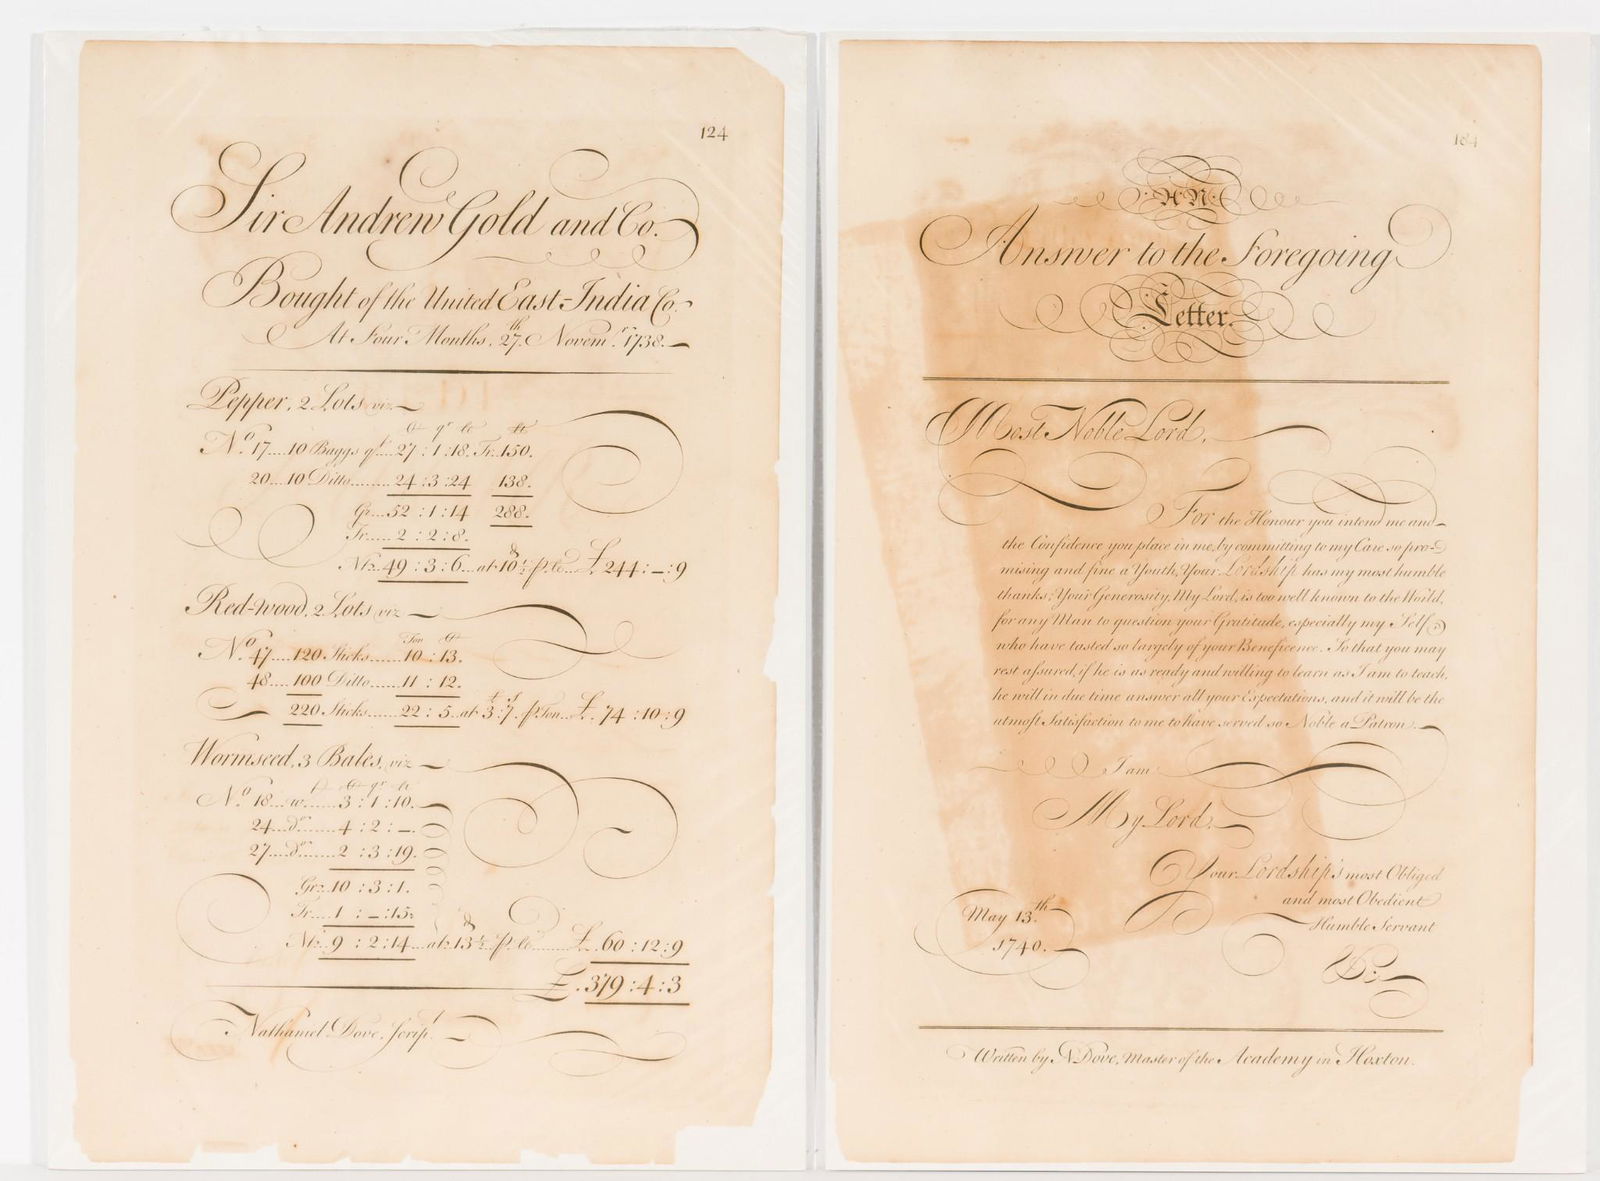 124
Sir Andrew Gold and Co.
Bought of the United East-India Co.
At Four Months. 27th Novemr. 1738.
Pepper, 2 Lots viz
C qr lb lb
No. 17....10 Baggs qt....27 : 1 : 18. Tr. 150.
20....10 Ditto.........24 : 3 : 24 138.
Gr....52 : 1 : 14 288.
Tr.....2 : 2 : 8.
Nt. 49 : 3 : 6...at 10½ p lb.... £ 244 : – : 9
Red-wood, 2 Lots viz
Ton C
No. 47....120 Sticks......10 : 13.
48....100 Ditto......11 : 12.
220 Sticks......22 : 5. at 3 : 7. p Ton... £. 74 : 10 : 9
Wormseed, 3 Bales, viz
C qr lb
No. 18....w.......3 : 1 : 10.
24....do.......4 : 2 : –.
27....do.......2 : 3 : 19.
Gr. 10 : 3 : 1.
Tr....1 : – : 15.
Nt. 9 : 2 : 14...at 13½ p lb........ £. 60 : 12 : 9
£. 379 : 4 : 3
Nathaniel Dove, Script.
184
AN
Answer to the Foregoing
Letter.
Most Noble Lord,
For the Honour you intend me and
the Confidence you place in me, by committing to my Care so pro-
mising and fine a Youth, Your Lordship has my most humble
thanks; Your Generosity, My Lord, is too well known to the World,
for any Man to question your Gratitude, especially my Self
who have tasted so largely of your Beneficence. So that you may
rest assured, if he is as ready and willing to learn as I am to teach,
he will in due time answer all your Expectations, and it will be the
utmost Satisfaction to me to have served so Noble a Patron.
I am
My Lord.
Your Lordship's most Obliged
and most Obedient
Humble Servant
May 13th
1740.
Written by N. Dove, Master of the Academy in Hoxton.